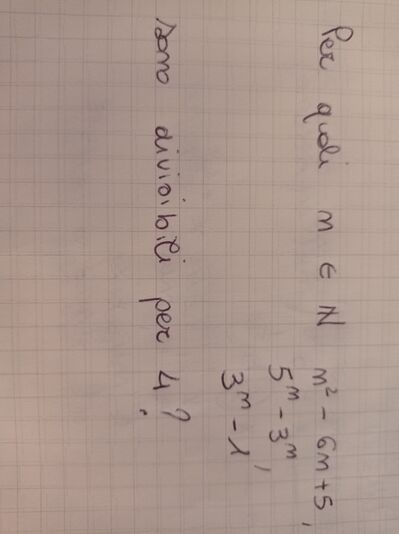 Per quali m ∈ ℕ m² - 6m + 5,
5ᵐ - 3ᵐ,
3ᵐ - 1
sono divisibili per 4?